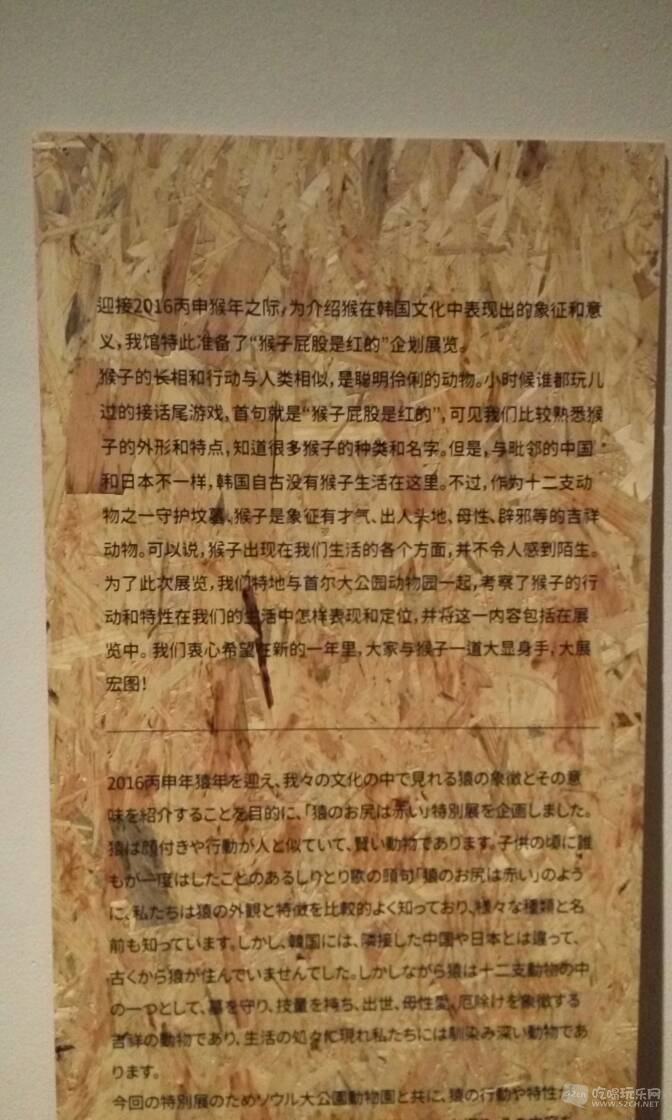 迎接2016丙申猴年之际，为介绍猴在韩国文化中表现出的象征和意
义，我馆特此准备了“猴子屁股是红的”企划展览。
猴子的长相和行动与人类相似，是聪明伶俐的动物。小时候谁都玩儿
过的接话尾游戏，首句就是“猴子屁股是红的”，可见我们比较熟悉猴
子的外形和特点，知道很多猴子的种类和名字。但是，与毗邻的中国
和日本不一样，韩国自古没有猴子生活在这里。不过，作为十二支动
物之一守护坟墓、猴子是象征有才气、出人头地、母性、辟邪等的吉祥
动物。可以说，猴子出现在我们生活的各个方面，并不令人感到陌生。
为了此次展览，我们特地与首尔大公园动物园一起，考察了猴子的行
动和特性在我们的生活中怎样表现和定位，并将这一内容包括在展
览中。我们衷心希望在新的一年里，大家与猴子一道大显身手，大展
宏图！
2016丙申年猿年を迎え、我々の文化の中で見れる猿の象徴とその意
味を紹介することを目的に、「猿のお尻は赤い」特別展を企画しました。
猿は顔付きや行動が人と似ていて、賢い動物であります。子供の頃に誰
もが一度はしたことのあるしりとり歌の頭句「猿のお尻は赤い」のよう
に、私たちは猿の外観と特徴を比較的よく知っており、様々な種類と名
前も知っています。しかし、韓国には、隣接した中国や日本とは違って、
古くから猿が住んでいませんでした。しかしながら猿は十二支動物の中
の一つとして、墓を守り、技量を持ち、出世、母性愛、厄除けを象徴する
吉祥の動物であり、生活の処々に現れ私たちには馴染み深い動物であ
ります。
今回の特別展のためソウル大公園動物園と共に、猿の行動や特性が
吃喝玩乐网
WWW.52CH.NET